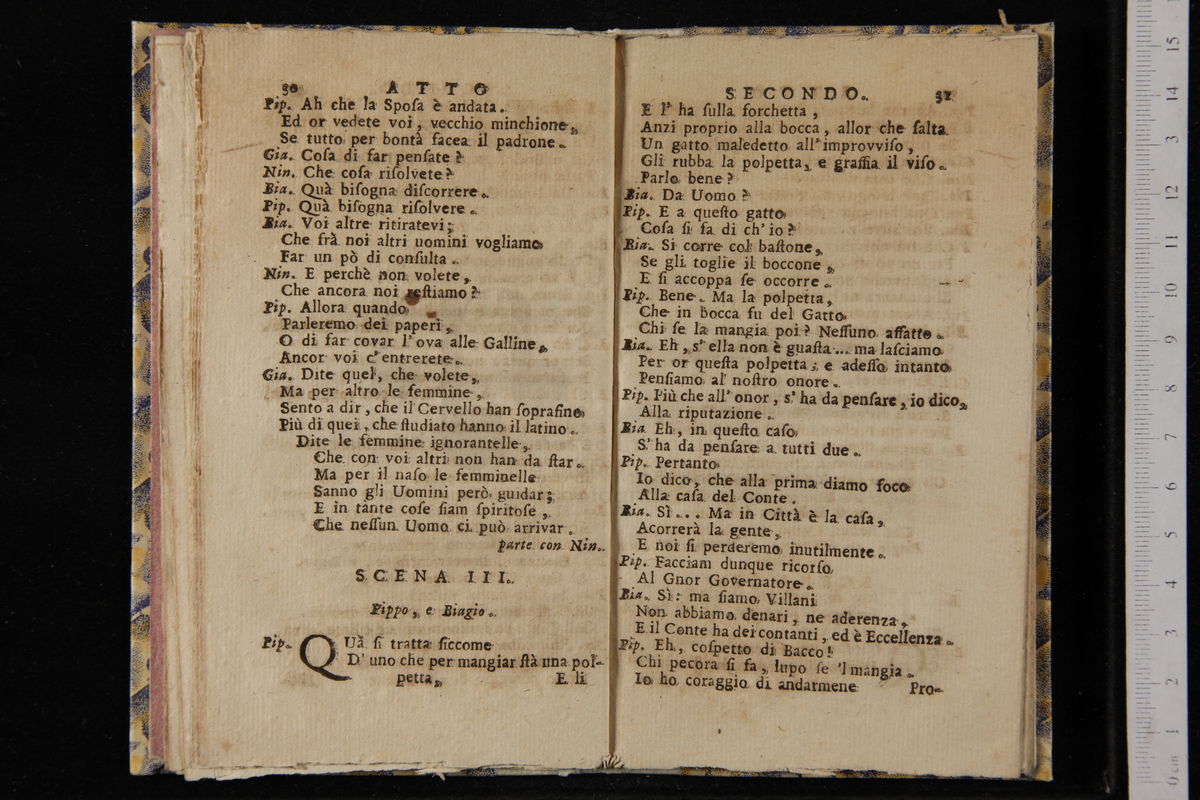 30 ATTO
Pip. Ah che la Spoſa è andata.
Ed or vedete voi, vecchio minchione,
Se tutto per bontà facea il padrone.
Gia. Coſa di far penſate?
Nin. Che coſa riſolvete?
Bia. Quà biſogna diſcorrere.
Pip. Quà biſogna riſolvere.
Bia. Voi altre ritiratevi;
Che frà noi altri uomini vogliamo
Far un pò di conſulta.
Nin. E perchè non volete,
Che ancora noi reſtiamo?
Pip. Allora quando
Parleremo dei paperi,
O di far covar l'ova alle Galline,
Ancor voi c'entrerete.
Gia. Dite quel, che volete,
Ma per altro le femmine,
Sento a dir, che il Cervello han ſoprafino
Più di quei, che ſtudiato hanno il latino.
Dite le femmine ignorantelle,
Che con voi altri non han da ſtar.
Ma per il naſo le femminelle
Sanno gli Uomini però guidar;
E in tante coſe ſiam ſpiritoſe,
Che neſſun Uomo ci può arrivar.
parte con Nin.
SCENA III.
Pippo, e Biagio.
Pip. QUà ſi tratta ſiccome
D'uno che per mangiar ſtà una pol-
petta, E li
SECONDO. 31
E l' ha ſulla forchetta,
Anzi proprio alla bocca, allor che ſalta
Un gatto maledetto all'improvviſo,
Gli rubba la polpetta, e graffia il viſo.
Parlo bene?
Bia. Da Uomo?
Pip. E a queſto gatto
Coſa ſi fa di ch' io?
Bia. Si corre col baſtone,
Se gli toglie il boccone,
E ſi accoppa ſe occorre.
Pip. Bene. Ma la polpetta,
Che in bocca fu del Gatto
Chi ſe la mangia poi? Neſſuno affatto.
Bia. Eh, s'ella non è guaſta... ma laſciamo
Per or queſta polpetta; e adeſſo intanto
Penſiamo al noſtro onore.
Pip. Più che all' onor, s' ha da penſare, io dico,
Alla riputazione.
Bia Eh, in queſto caſo
S' ha da penſare a tutti due.
Pip. Pertanto
Io dico, che alla prima diamo foco
Alla caſa del Conte.
Bia. Sì... Ma in Città è la caſa,
Acorrerà la gente,
E noi ſi perderemo inutilmente.
Pip. Facciam dunque ricorſo
Al Gnor Governatore.
Bia. Sì: ma ſiamo Villani
Non abbiamo denari, ne aderenza,
E il Conte ha dei contanti, ed è Eccellenza.
Pip. Eh, coſpetto di Bacco!
Chi pecora ſi fa, lupo ſe 'l mangia.
Io ho coraggio di andarmene Pro-
15
14
13
12
11
10
9
8
7
6
5
4
3
2
1
0 cm